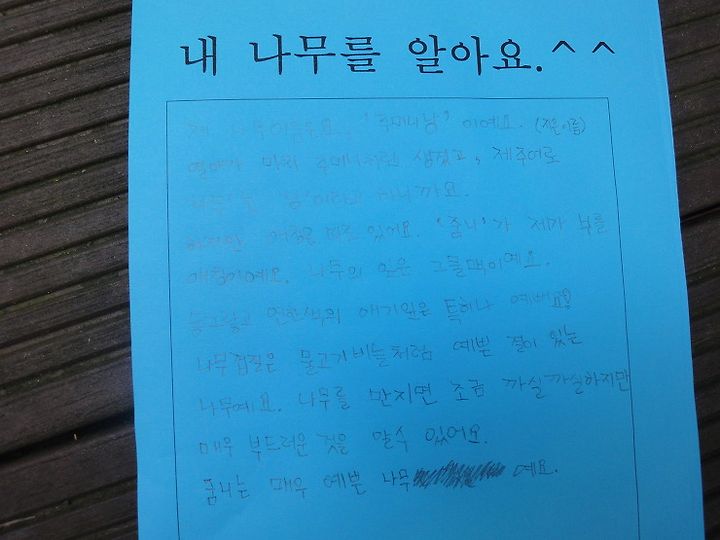 내 나무를 알아요.^^
제 나무이름은요, '주머니낭' 이에요. (지은이름)
열매가 주머니처럼 생겼고, 제주어로
나무는 '낭'이라고 하니까요.
하지만 애칭은 따로 있어요. '줌니'가 제가 부를
애칭이에요. 나무의 잎은 그물맥이예요.
동그랗고 연한색의 애기잎은 특히나 예뻐요!
나무껍질은 물고기비늘처럼 예쁜 결이 있는
나무예요. 나무를 만지면 조금 까실까실하지만
매우 부드러운 것을 알수 있어요.
줌니는 매우 예쁜 나무 예요.